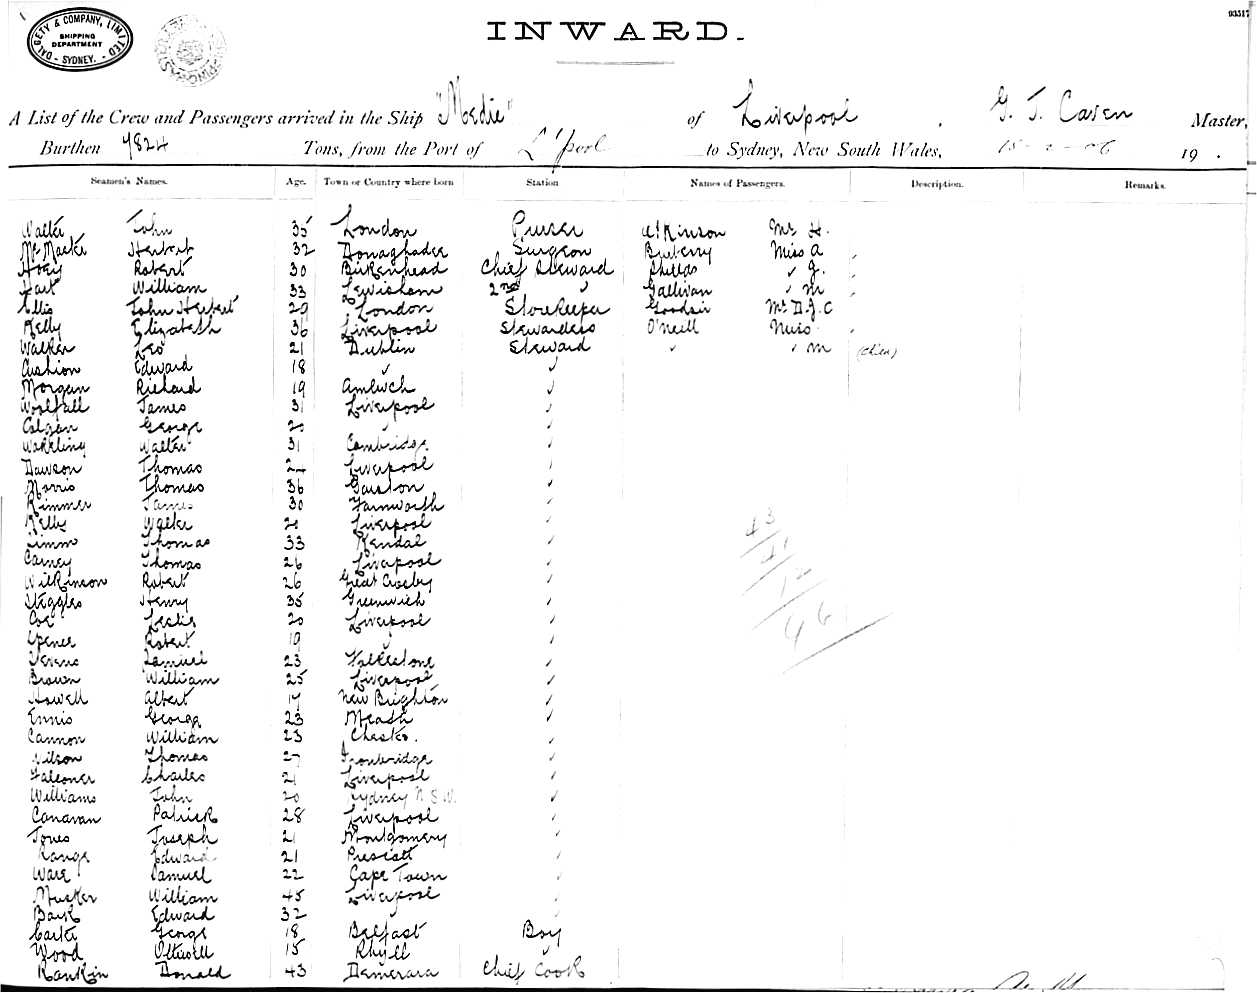 DALGETY & COMPANY, LIMITED
SHIPPING
DEPARTMENT
- SYDNEY. -
93517
INWARD.
A List of the Crew and Passengers arrived in the Ship "Medic" of Liverpool, G. J. Caven Master,
Burthen 9824 Tons, from the Port of L'pool to Sydney, New South Wales, 19 .
Seamen's Names. Age. Town or Country where born Station Names of Passengers. Description. Remarks.
Walter John 35 London Purser Atkinson Mr H.
Herbert 32 Donaghadee Surgeon Miss A
Hoey Robert 30 Birkenhead Chief Steward Phillps " J.
Hart William 33 Lewisham 2nd " Gallivan " M
Ellis John Herbert 29 London Storekeeper Goodair Mr D.J.C
Kelly Elizabeth 36 Liverpool Stewardess O'Neill Miss
Walker Leo 21 Dublin Steward " " M (Chld)
Cushion Edward 18 " "
Morgan Richard 19 Amlwch "
Woolfall James 31 Liverpool "
Colgan George 20 " "
Wakeling Walter 31 Cambridge "
Dawson Thomas 24 Liverpool "
Morris Thomas 36 Garston "
Rimmer James 30 Farnworth "
Kelly Walter 21 Liverpool "
Timm Thomas 33 Kendal "
Carney Thomas 26 Liverpool "
Wilkinson Robert 26 Great Crosby "
Steggles Henry 35 Greenwich "
Coe Leslie 20 Liverpool "
Spence Robert 19 " "
Samuel 23 Folkestone "
Brown William 25 Liverpool "
Howell Albert 17 New Brighton "
Ennis George 23 Meath "
Cannon William 23 Chester. "
Wilson Thomas 27 Ironbridge "
Falconer Charles 21 Liverpool "
Williams John 20 Sydney N.S.W. "
Canavan Patrick 28 Liverpool "
Jones Joseph 21 Montgomery "
Range Edward 21 Prescott "
Ware Samuel 22 Cape Town "
Musker William 45 Liverpool "
Bark Edward 32 " "
Carter George 18 Belfast Boy
Wood Ottiwell 15 Rhyll "
Rankin Donald 43 Demerara Chief Cook
43
41
12
96